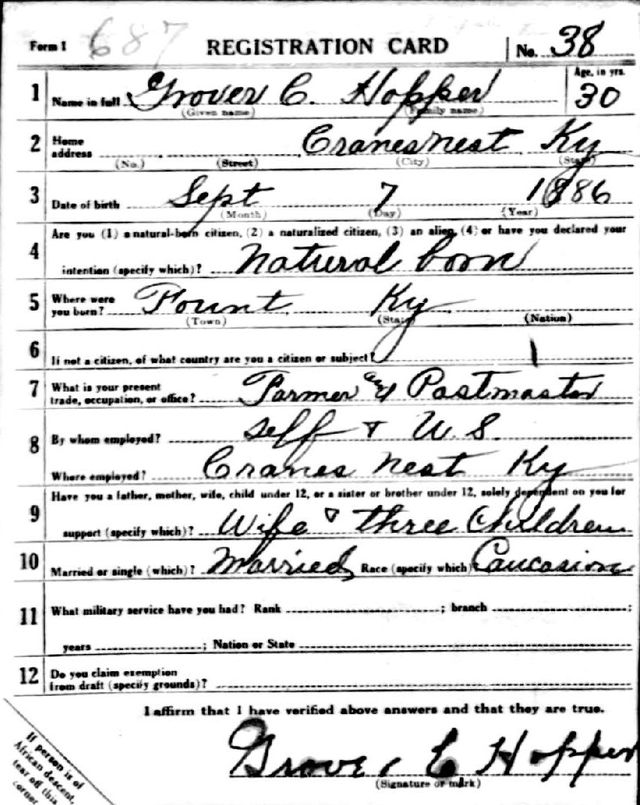 Form 1 687 REGISTRATION CARD No. 38
1 Name in full Grover C. Hopper Age, in yrs. 30
(Given name) (Family name)
2 Home address Cranesnest Ky
(No.) (Street) (City) (State)
3 Date of birth Sept 7 1886
(Month) (Day) (Year)
Are you (1) a natural-born citizen, (2) a naturalized citizen, (3) an alien, (4) or have you declared your
4 intention (specify which)? Natural born
5 Where were you born? Fount Ky
(Town) (State) (Nation)
6 If not a citizen, of what country are you a citizen or subject?
7 What is your present trade, occupation, or office? Farmer & Postmaster
8 By whom employed? self & U.S.
Where employed? Cranes nest Ky
Have you a father, mother, wife, child under 12, or a sister or brother under 12, solely dependent on you for
9 support (specify which)? Wife & three Children
10 Married or single (which)? Married Race (specify which) Caucasion
11 What military service have you had? Rank ; branch ;
years ; Nation or State
12 Do you claim exemption from draft (specify grounds)?
I affirm that I have verified above answers and that they are true.
Grover C Hopper
(Signature or mark)
If person is of
African descent,
tear off this
corner